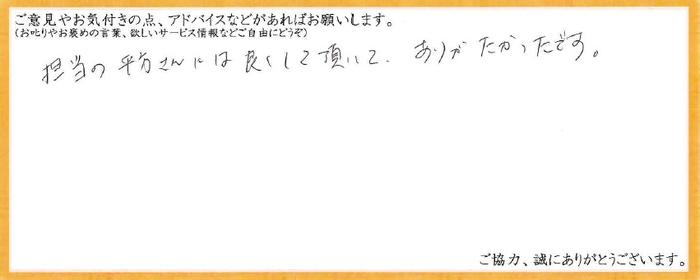 ご意見やお気付きの点、アドバイスなどがあればお願いします。
(お叱りやお褒めの言葉、欲しいサービス情報などご自由にどうぞ)
担当の平方さんには良くして頂いて、ありがたかったです。
ご協力、誠にありがとうございます。